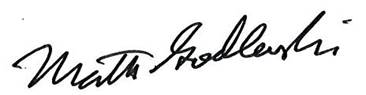 Matt Godlewski